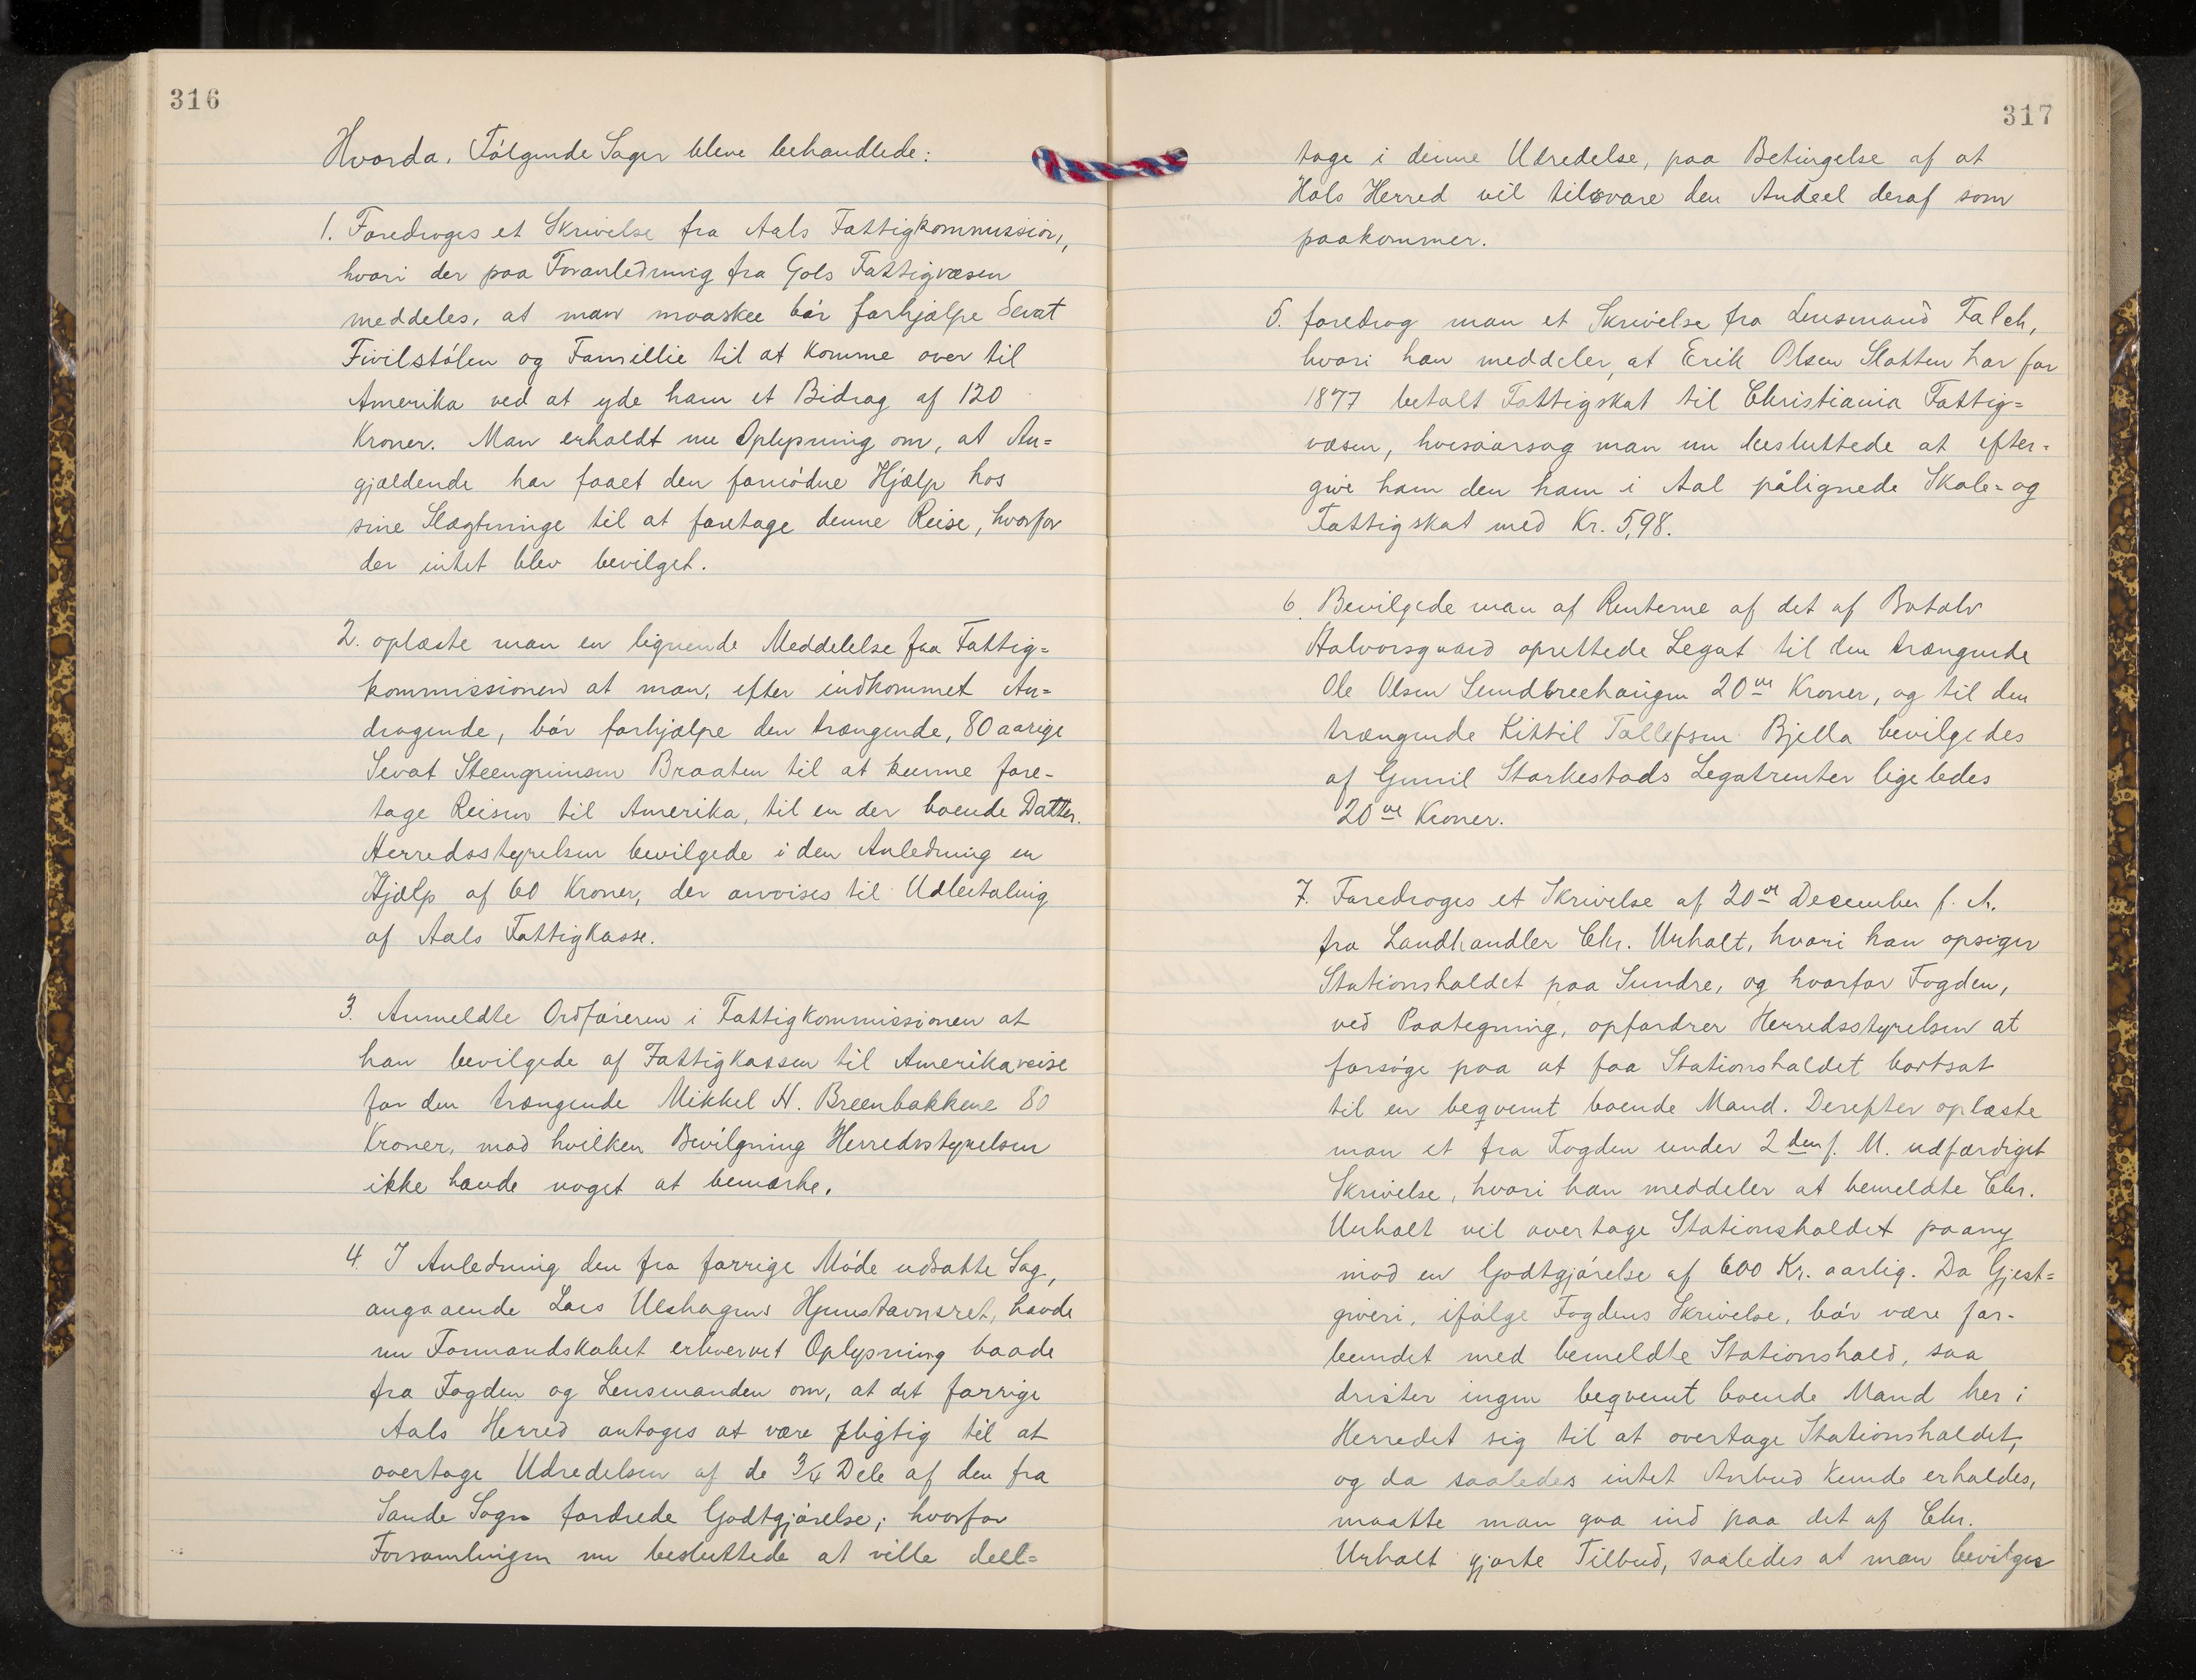 316
Hvorda. Følgende Sager bleve behandlede:
1. Foredroges et Skrivelse fra Aals Fattigkommission,
hvori der paa Foranledning fra Gols Fattigvæsen
meddeles, at man maaskee bør forhjælpe Sevat
Tivilstølen og Famillie til at komme over til
Amerika ved at yde ham et Bidrag af 120
Kroner. Man erholdt nu Oplysning om, at An=
gjældende har faaet den fornødne Hjælp hos
sine Slægtninge til at foretage denne Reise, hvorfor
der intet blev bevilget.
2. oplæste man en lignende Meddelelse fra Fattig=
kommissionen at man, efter indkommet An=
dragende, bør forhjælpe den trængende, 80 aarige
Sevat Steengrimsen Braaten til at kunne fore-
tage Reisen til Amerika, til en der boende Datter.
Herredsstyrelsen bevilgede i den Anledning en
Hjælp af 60 Kroner, der anvises til Udbetaling
af Aals Fattigkasse.
3. Anmeldte Ordføreren i Fattigkommissionen at
han bevilgede af Fattigkassen til Amerikareise
for den trængende Mikkel H. Breenbakkene 80
Kroner, mod hvilken Bevilgning Herredsstyrelsen
ikke havde noget at bemærke.
4. I Anledning den fra forrige Møde udsatte Sag,
angaaende Lars Ulshagens Hjemstavnsret, havde
nu Formandskabet erhvervet Oplysning baade
fra Fogden og Lensmanden om, at det forrige
Aals Herred antages at være pligtig til at
overtage Udredelsen af de 3/4 Dele af den fra
Sande Sogn fordrede Godtgjørelse; hvorfor
Forsamlingen nu besluttede at ville deel=
317
tage i denne Udredelse, paa Betingelse af at
Hols Herred vil tilsvare den Andeel deraf som
paakommer.
5. foredrog man et Skrivelse fra Lensmand Falch,
hvori han meddeler, at Erik Olsen Slotten har for
1877 betalt Fattigskat til Christiania Fattig=
væsen, hvisaarsag man nu besluttede at efter=
give ham den ham i Aal pålignede Skole= og
Fattigskat med Kr. 5,98.
6. Bevilgede man af Renterne af det af Botolv
Halvorsgaard oprettede Legat til den trængende
Ole Olsen Sundbreehaugen 20ve Kroner, og til den
trængende Kittil Tollefsen Bjella bevilgedes
af Gunil Starkestads Legatrenter ligeledes
20ve Kroner.
7. Foredroges et Skrivelse af 20de December f. A.
fra Landhandler Chr. Unhalt, hvori han opsiger
Stationsholdet paa Sundre, og hvorfor Fogden,
ved Paategning, opfordrer Herredsstyrelsen at
forsøge paa at faa Stationsholdet bortsat
til en beqvemt boende Mand. Derefter oplæste
man et fra Fogden under 2den f. M. udfærdiget
Skrivelse, hvori han meddeler at bemeldte Chr.
Unhalt vil overtage Stationsholdet paany
mod en Godtgjørelse af 600 Kr. aarlig. Da Gjest=
giveri, ifølge Fogdens Skrivelse, bør være for-
bundet med bemeldte Stationshold, saa
drister ingen beqvemt boende Mand her i
Herredet sig til at overtage Stationsholdet,
og da saaledes intet Anbud kunde erholdes,
maatte man gaa ind paa det af Chr.
Unhalt gjorte Tilbud, saaledes at man bevilger